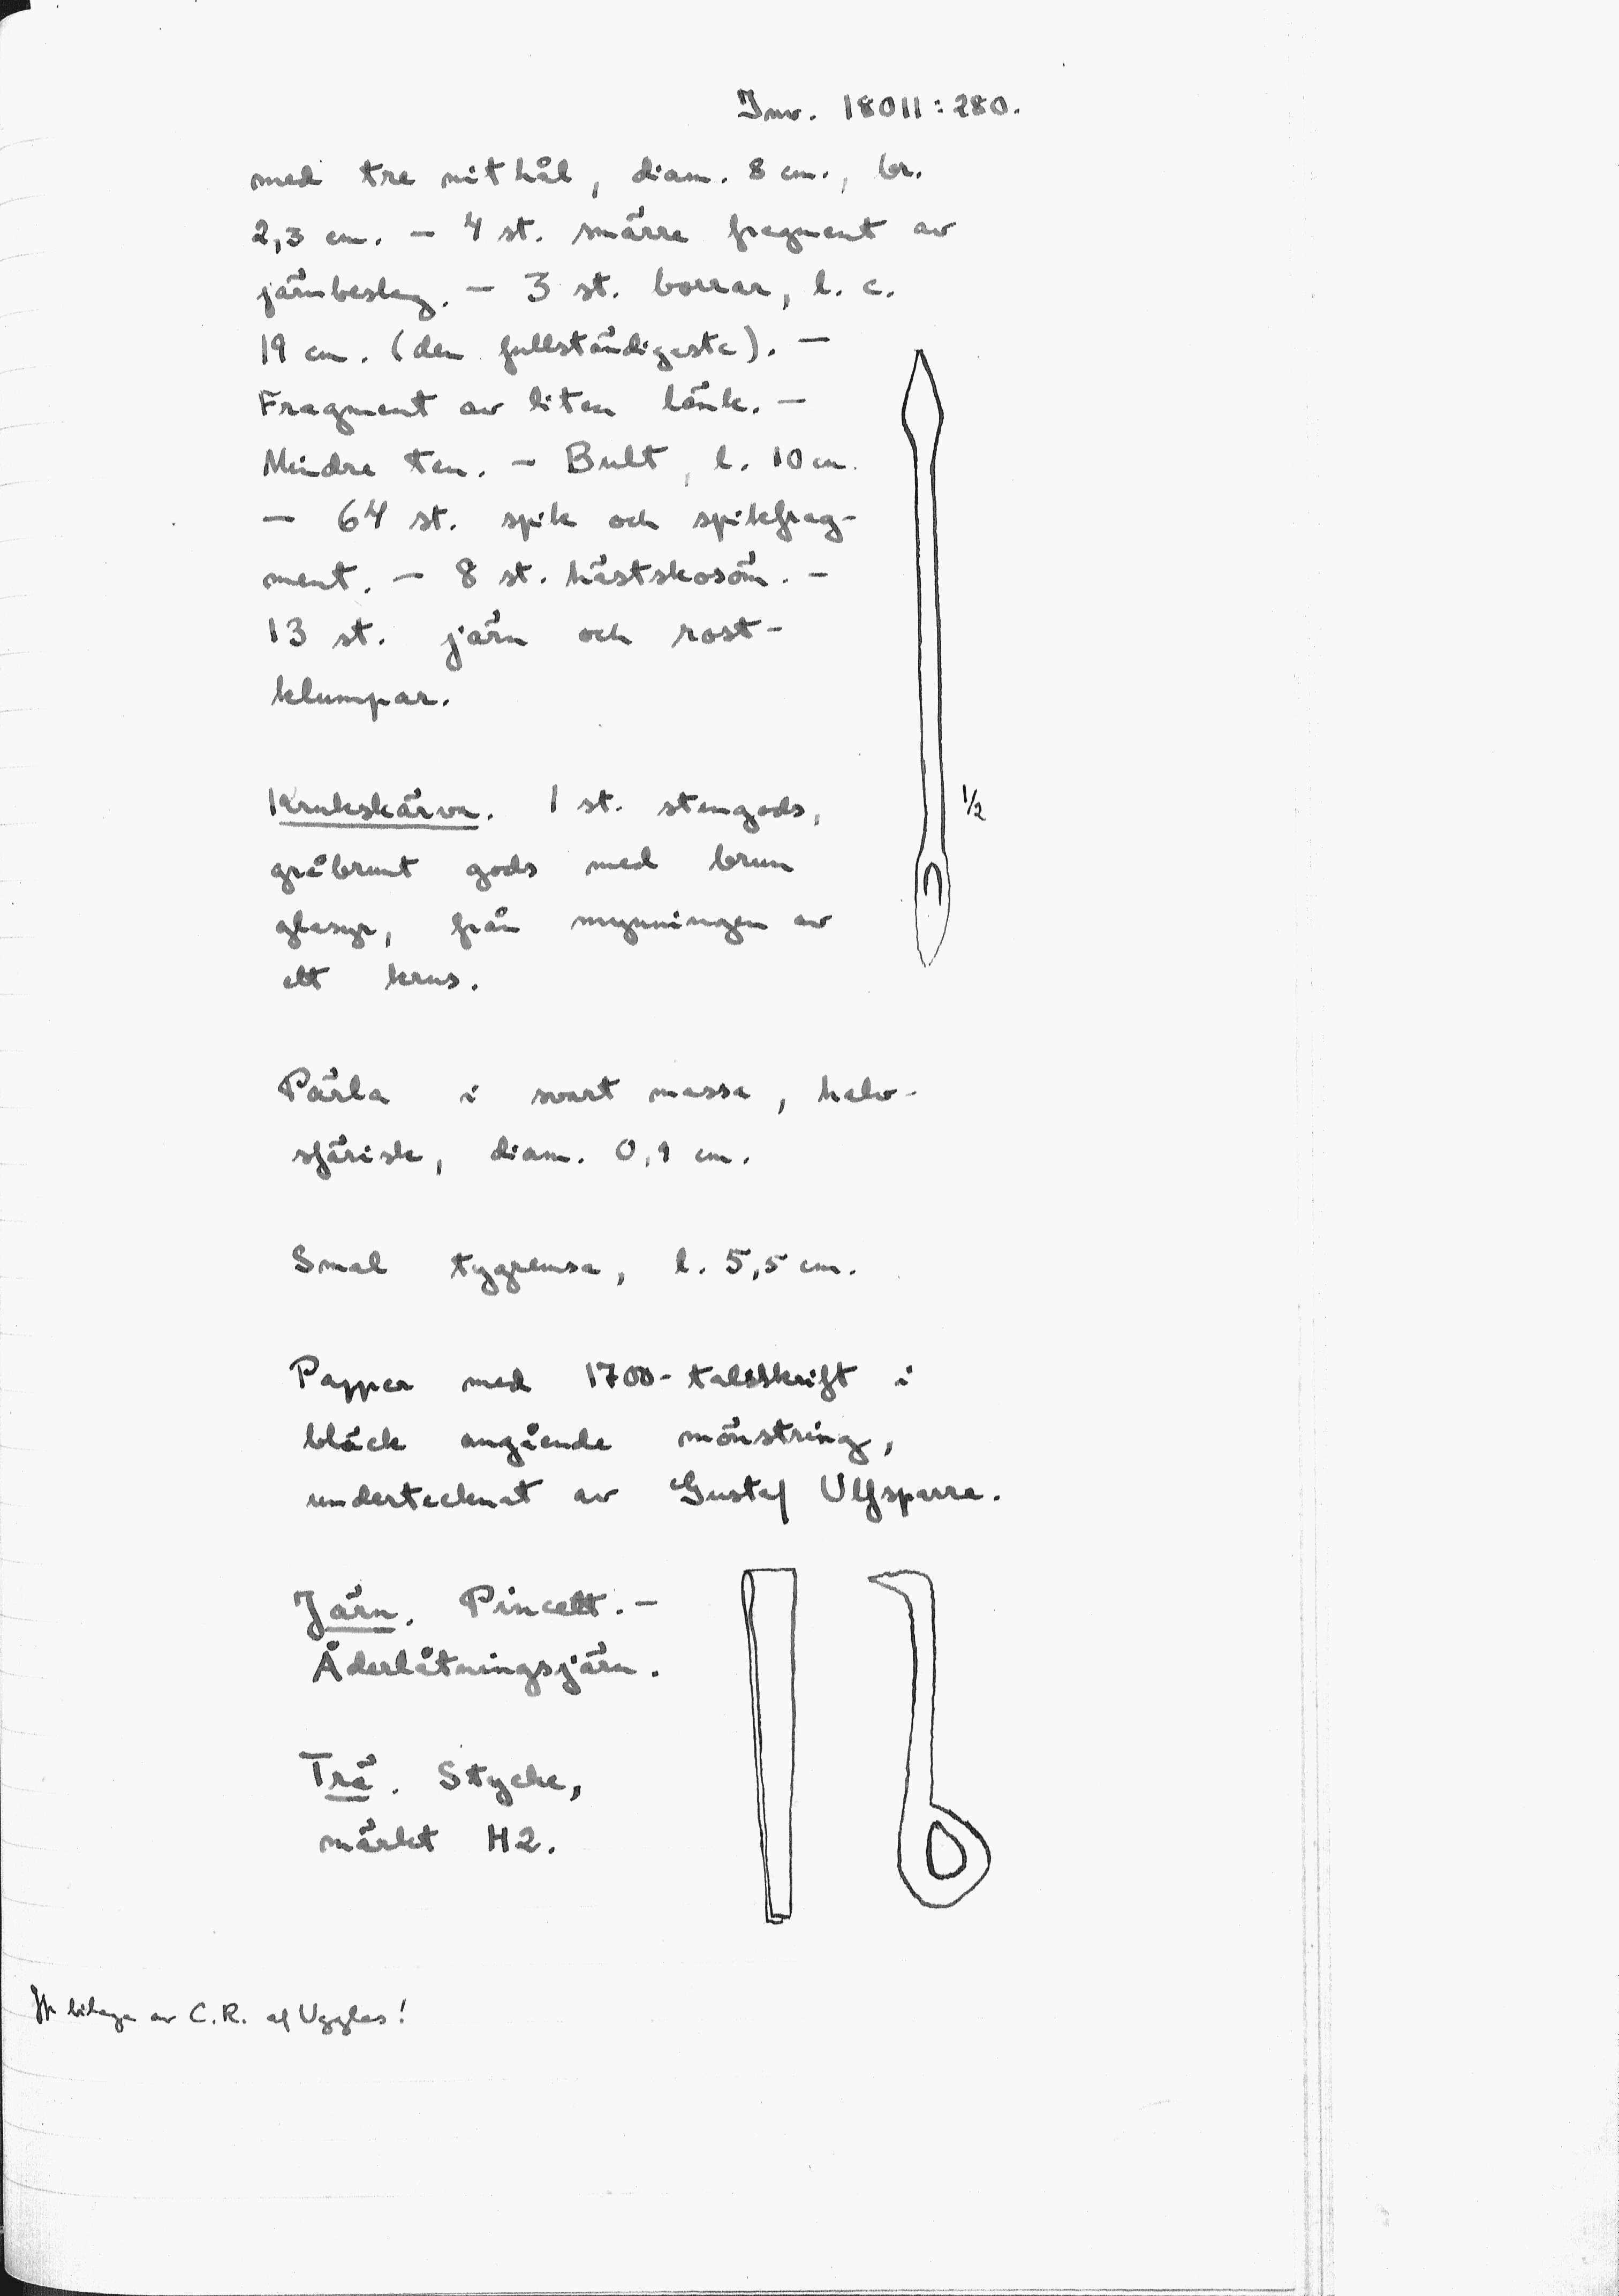 Inv. 18011:280.
med tre nithål, diam. 8 cm., br.
2,3 cm. — 4 st. smärre fragment av
järnbeslag. — 3 st. borrar, l. c.
19 cm. (den fullständigaste). —
Fragment av liten länk. —
Mindre ten. — Bult, l. 10 cm.
— 64 st. spik och spikfrag-
ment. — 8 st. hästskosöm. —
13 st. järn och rost-
klumpar.
1/2
Krukskärva. 1 st. stengods,
gråbrunt gods med brun
glasyr, från mynningen av
ett krus.
Pärla i svart massa, halv-
sfärisk, diam. 0,9 cm.
Smal tygremsa, l. 5,5 cm.
Papper med 1700-talsskrift i
bläck angående mönstring,
undertecknat av Gustaf Ulfsparre.
Järn. Pincett. —
Åderlåtningsjärn.
Trä. Stycke,
märkt H2.
bilaga av C.R. af Ugglas!